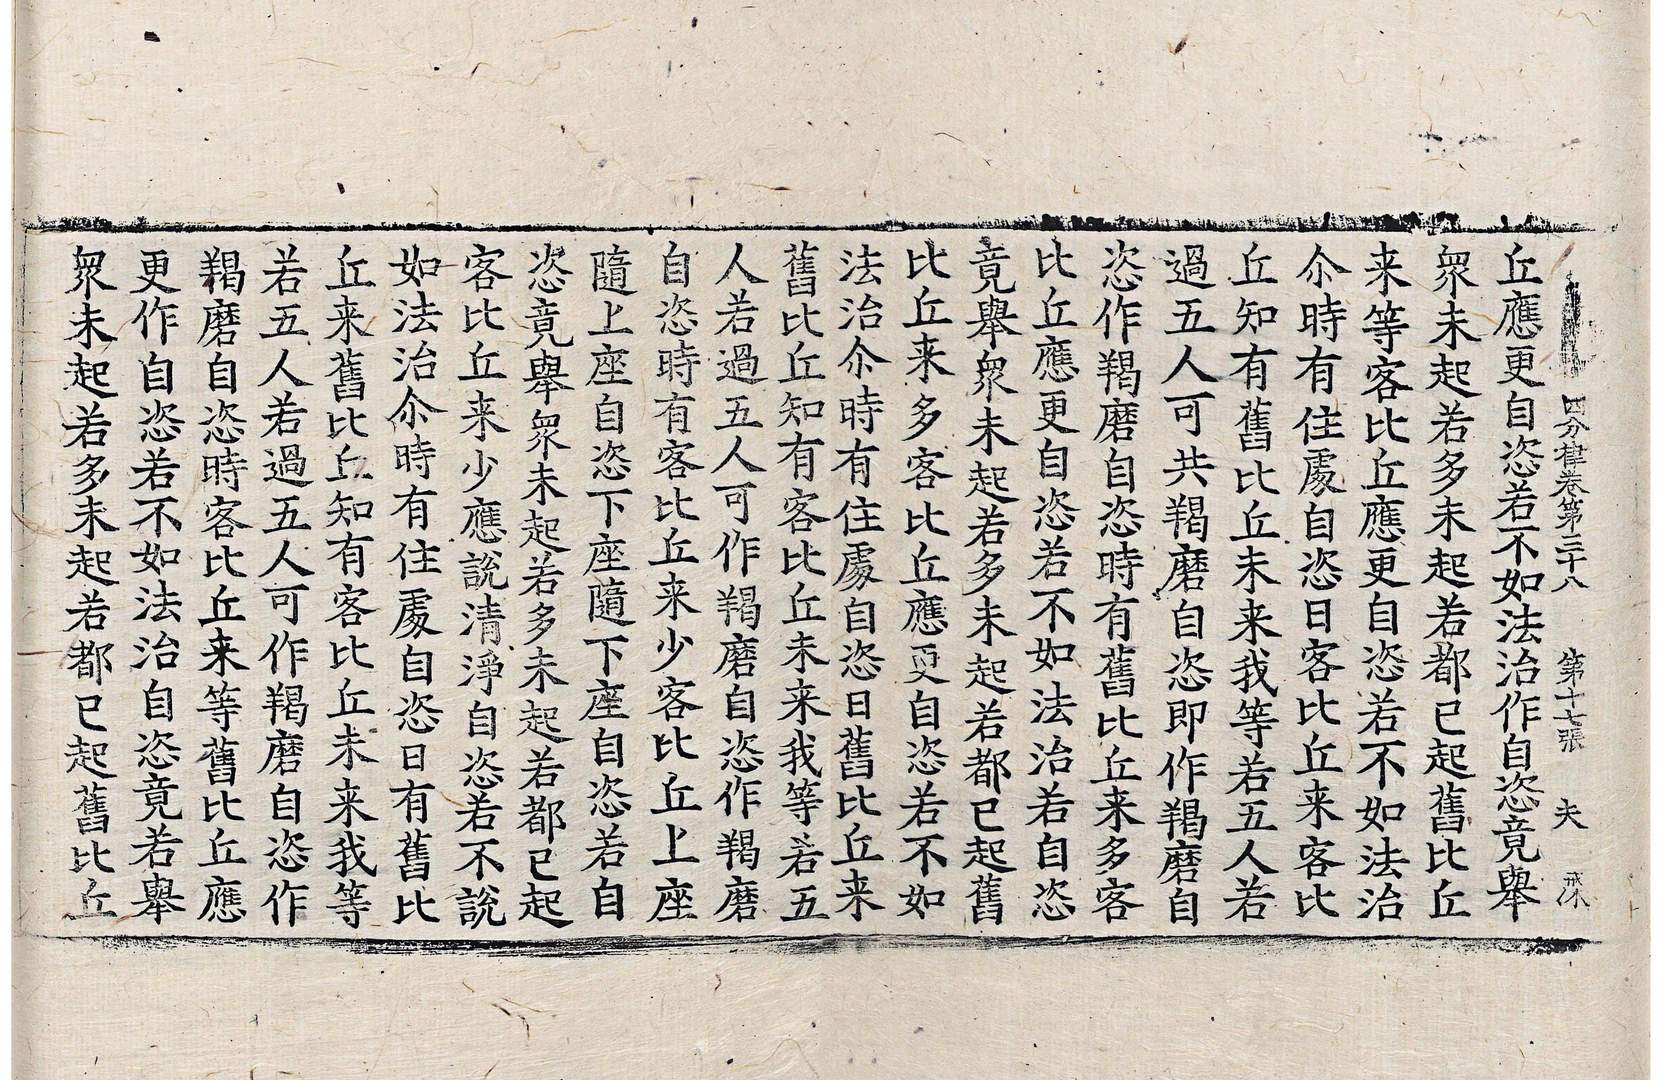 四分律卷第三十八 第十七張 夫
丘應更自恣若不如法治作自恣竟舉
衆未起若多未起若都已起舊比丘
来等客比丘應更自恣若不如法治
尒時有住處自恣日客比丘来客比
丘知有舊比丘未来我等若五人若
過五人可共羯磨自恣即作羯磨自
恣作羯磨自恣時有舊比丘来多客
比丘應更自恣若不如法治若自恣
竟舉衆未起若多未起若都已起舊
比丘来多客比丘應更自恣若不如
法治尒時有住處自恣日舊比丘来
舊比丘知有客比丘未来我等若五
人若過五人可作羯磨自恣作羯磨
自恣時有客比丘来少客比丘上座
隨上座自恣下座隨下座自恣若自
恣竟舉衆未起若多未起若都已起
客比丘来少應說清淨自恣若不說
如法治尒時有住處自恣日有舊比
丘来舊比丘知有客比丘未来我等
若五人若過五人可作羯磨自恣作
羯磨自恣時客比丘来等舊比丘應
更作自恣若不如法治自恣竟若舉
衆未起若多未起若都已起舊比丘